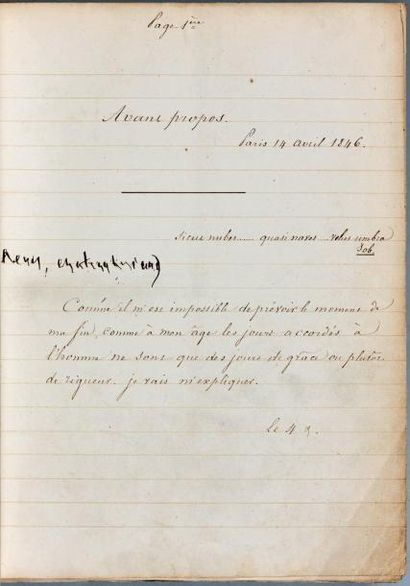 Page 1ère
Avant propos.
Paris 14 avril 1846.
Sicut nubes...... quasi naves.. velut umbra
Job.
Comme il m'est impossible de prévoir le moment de
ma fin, comme à mon âge les jours accordés à
l'homme ne sont que des jours de grâce ou plutôt
de rigueur. je vais m'expliquer.
Le 4 7.